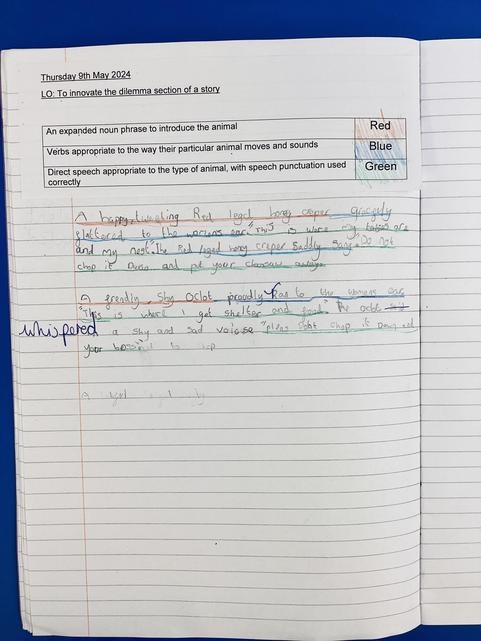 Thursday 9th May 2024
LO: To innovate the dilemma section of a story
An expanded noun phrase to introduce the animal Red
Verbs appropriate to the way their particular animal moves and sounds Blue
Direct speech appropriate to the type of animal, with speech punctuation used correctly Green
A happy, tweeting Red leged hony creper gracedly
flattered to the womans ear. "This is were my babies are
and my nest" The Red leged hony creper Saddly Sang "Do not
chop it Down and put your chansaw away
A frendly, Shy Oclot proudly Ran to the womans ear
"This is where I get shelter and food" The oclot
whispered a shy and sad voicse "plens dont chop it Down
your
A